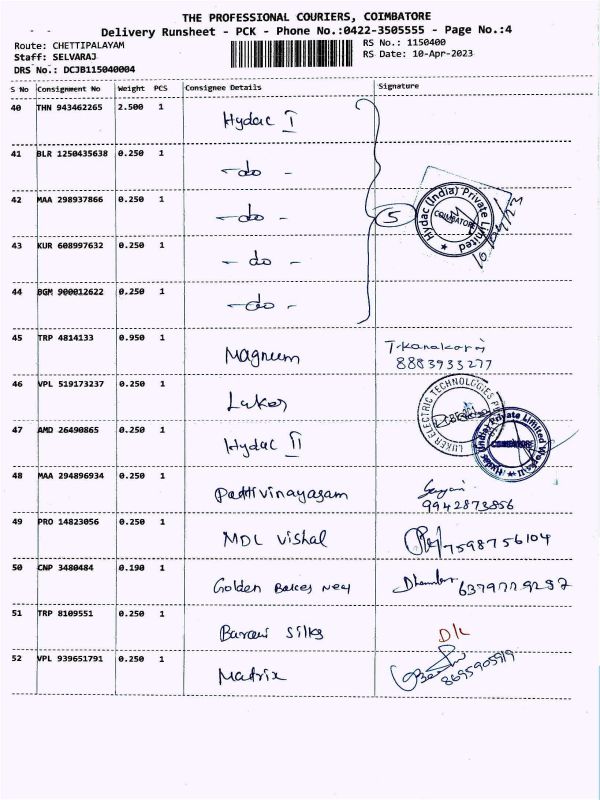 THE PROFESSIONAL COURIERS, COIMBATORE
Delivery Runsheet - PCK - Phone No.:0422-3505555 - Page No.:4
Route: CHETTIPALAYAM RS No.: 1150400
Staff: SELVARAJ RS Date: 10-Apr-2023
DRS No.: DCJB115040004
S No Consignment No Weight PCS Consignee Details Signature
40 THN 943462265 2.500 1 Hydac I
41 BLR 1250435638 0.250 1 -do-
42 MAA 298937866 0.250 1 -do- 5 Hydac (India) Private Limited COIMBATORE
43 KUR 608997632 0.250 1 -do-
44 BGM 900012622 0.250 1 -do-
45 TRP 4814133 0.950 1 Magnum T.Kanakaraj
8883933277
46 VPL 519173237 0.250 1 Luker LUKER ELECTRIC TECHNOLOGIES
47 AMD 26490865 0.250 1 Hydac II Hydac (India) Private Limited COIMBATORE
48 MAA 294896934 0.250 1 Pattivinayagam
9942873856
49 PRO 14823056 0.250 1 MDL Vishal 7598756104
50 CNP 3480484 0.190 1 Golden Bakes New 6379779237
51 TRP 8109551 0.250 1 Barani Silks D/L
52 VPL 939651791 0.250 1 Matrix 8695905919